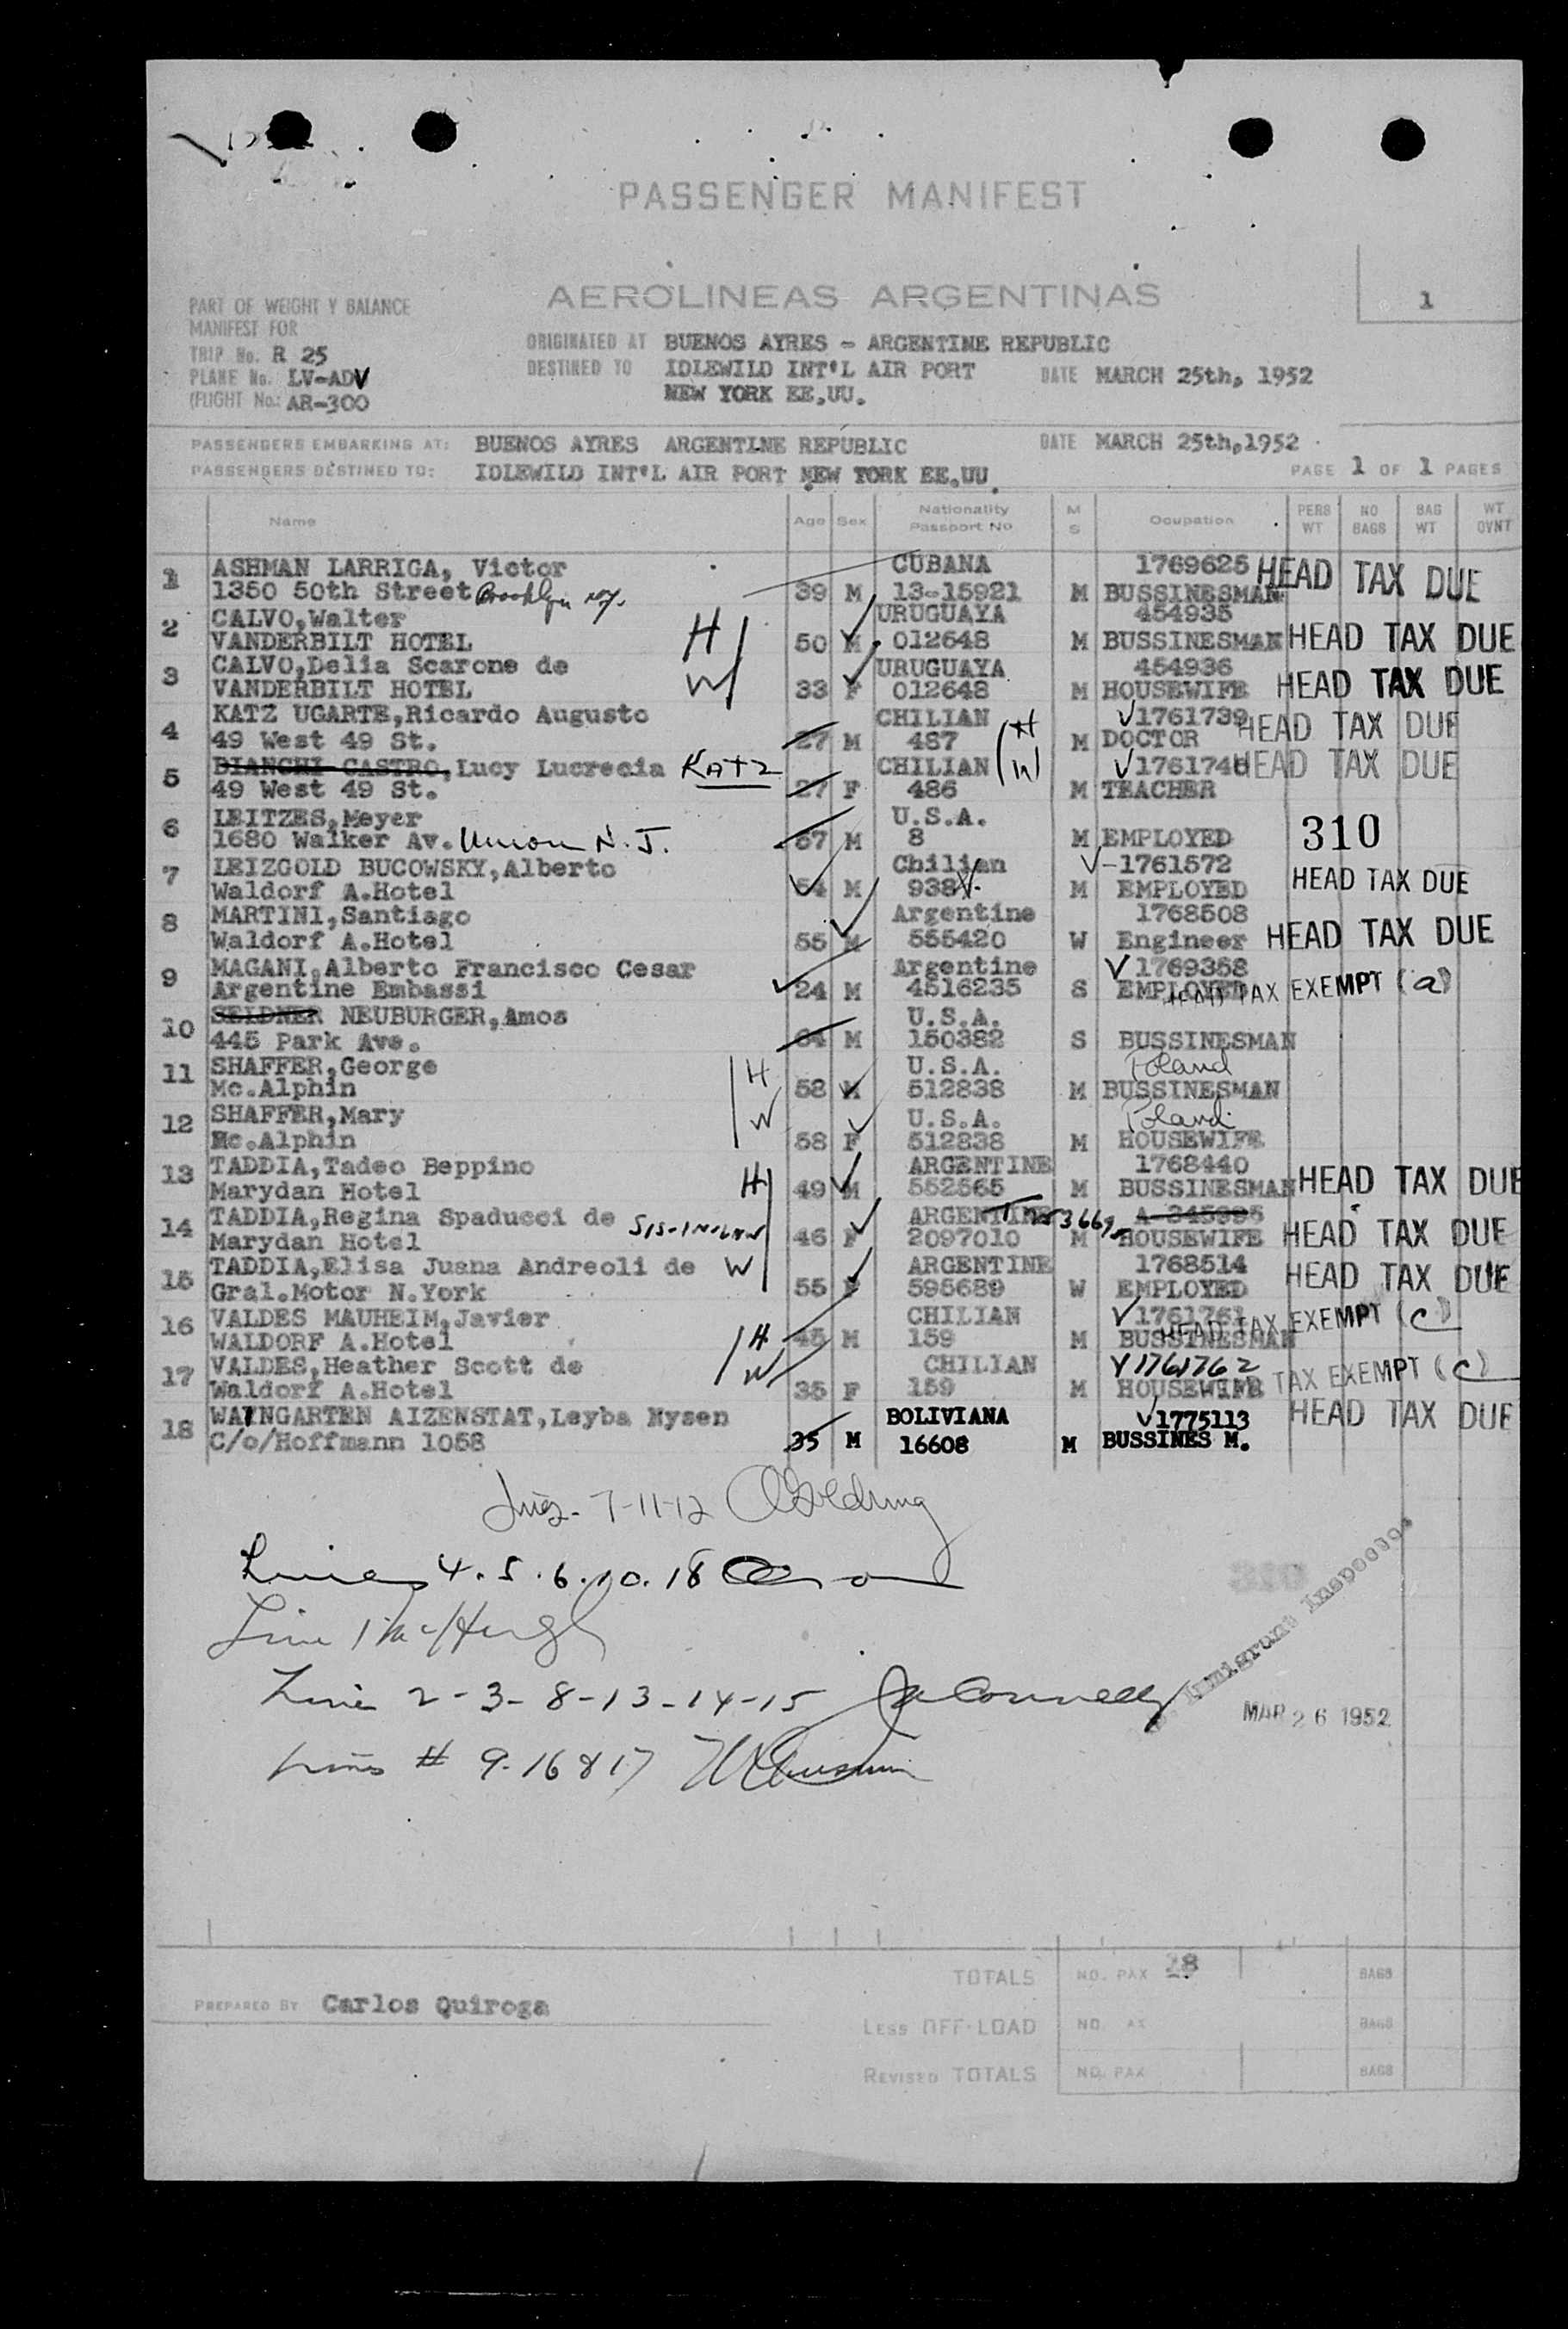 PASSENGER MANIFEST
AEROLINEAS ARGENTINAS
1
PART OF WEIGHT Y BALANCE
MANIFEST FOR
TRIP No. R 25
PLANE No. LV-ADV
(FLIGHT No.: AR-300
ORIGINATED AT BUENOS AYRES - ARGENTINE REPUBLIC
DESTINED TO IDLEWILD INT'L AIR PORT
NEW YORK EE.UU.
DATE MARCH 25th, 1952
PASSENGERS EMBARKING AT: BUENOS AYRES ARGENTINE REPUBLIC DATE MARCH 25th,1952
PASSENGERS DESTINED TO: IDLEWILD INT'L AIR PORT NEW YORK EE.UU.
PAGE 1 OF 1 PAGES
Name Age Sex Nationality Passport No M S Ocupation PERS WT NO BAGS BAG WT WT OVNT
1 ASHMAN LARRIGA, Victor CUBANA 1769625 HEAD TAX DUE
1350 50th Street Brooklyn NY. 39 M 13-15921 M BUSSINESMAN
2 CALVO,Walter URUGUAYA 454935
VANDERBILT HOTEL H 50 M 012648 M BUSSINESMAN HEAD TAX DUE
3 CALVO,Delia Scarone de URUGUAYA 454936
VANDERBILT HOTEL W 33 F 012648 M HOUSEWIFE HEAD TAX DUE
4 KATZ UGARTE,Ricardo Augusto CHILIAN H 1761739 HEAD TAX DUE
49 West 49 St. 27 M 487 M DOCTOR
5 BIANCHI CASTRO,Lucy Lucrecia KATZ CHILIAN W 1761740 HEAD TAX DUE
49 West 49 St. 27 F 486 M TEACHER
6 LEITZES,Meyer U.S.A.
1680 Walker Av. Union N.J. 67 M 8 M EMPLOYED 310
7 LEIZGOLD BUCOWSKY,Alberto Chilian 1761572
Waldorf A.Hotel 54 M 938 M EMPLOYED HEAD TAX DUE
8 MARTINI,Santiago Argentine 1768508
Waldorf A.Hotel 55 M 555420 W Engineer HEAD TAX DUE
9 MAGANI,Alberto Francisco Cesar Argentine 1769358
Argentine Embassi 24 M 4516235 S EMPLOYED HEAD TAX EXEMPT (a)
10 SEIDNER NEUBURGER,Amos U.S.A.
445 Park Ave. 64 M 150382 S BUSSINESMAN
11 SHAFFER,George H U.S.A. Poland
Mc.Alphin 58 M 512838 M BUSSINESMAN
12 SHAFFER,Mary W U.S.A. Poland
Mc.Alphin 58 F 512838 M HOUSEWIFE
13 TADDIA,Tadeo Beppino ARGENTINE 1768440
Marydan Hotel H 49 M 552565 M BUSSINESMAN HEAD TAX DUE
14 TADDIA,Regina Spaducci de SIS-IN-LAW ARGENTINE
Marydan Hotel 46 F 2097010 M HOUSEWIFE HEAD TAX DUE
15 TADDIA,Elisa Juana Andreoli de W ARGENTINE 1768514
Gral.Motor N.York 55 F 595689 W EMPLOYED HEAD TAX DUE
16 VALDES MAUHEIM,Javier CHILIAN 1761761 HEAD TAX EXEMPT (c)
WALDORF A.Hotel H 45 M 159 M BUSSINESMAN
17 VALDES,Heather Scott de W CHILIAN 1761762
Waldorf A.Hotel 35 F 159 M HOUSEWIFE TAX EXEMPT (c)
18 WAINGARTEN AIZENSTAT,Leyba Nysen BOLIVIANA 1775113 HEAD TAX DUE
C/o/Hoffmann 1058 35 M 16608 M BUSSINES M.
7-11-12
Lines 4.5.6.10.18
Line 1
Line 2-3-8-13-14-15
Lines # 9-16&17
Immigrant Inspector
MAR 26 1952
TOTALS NO. PAX 18 BAGS
PREPARED BY Carlos Quiroga
LESS OFF-LOAD NO. PAX BAGS
REVISED TOTALS NO. PAX BAGS